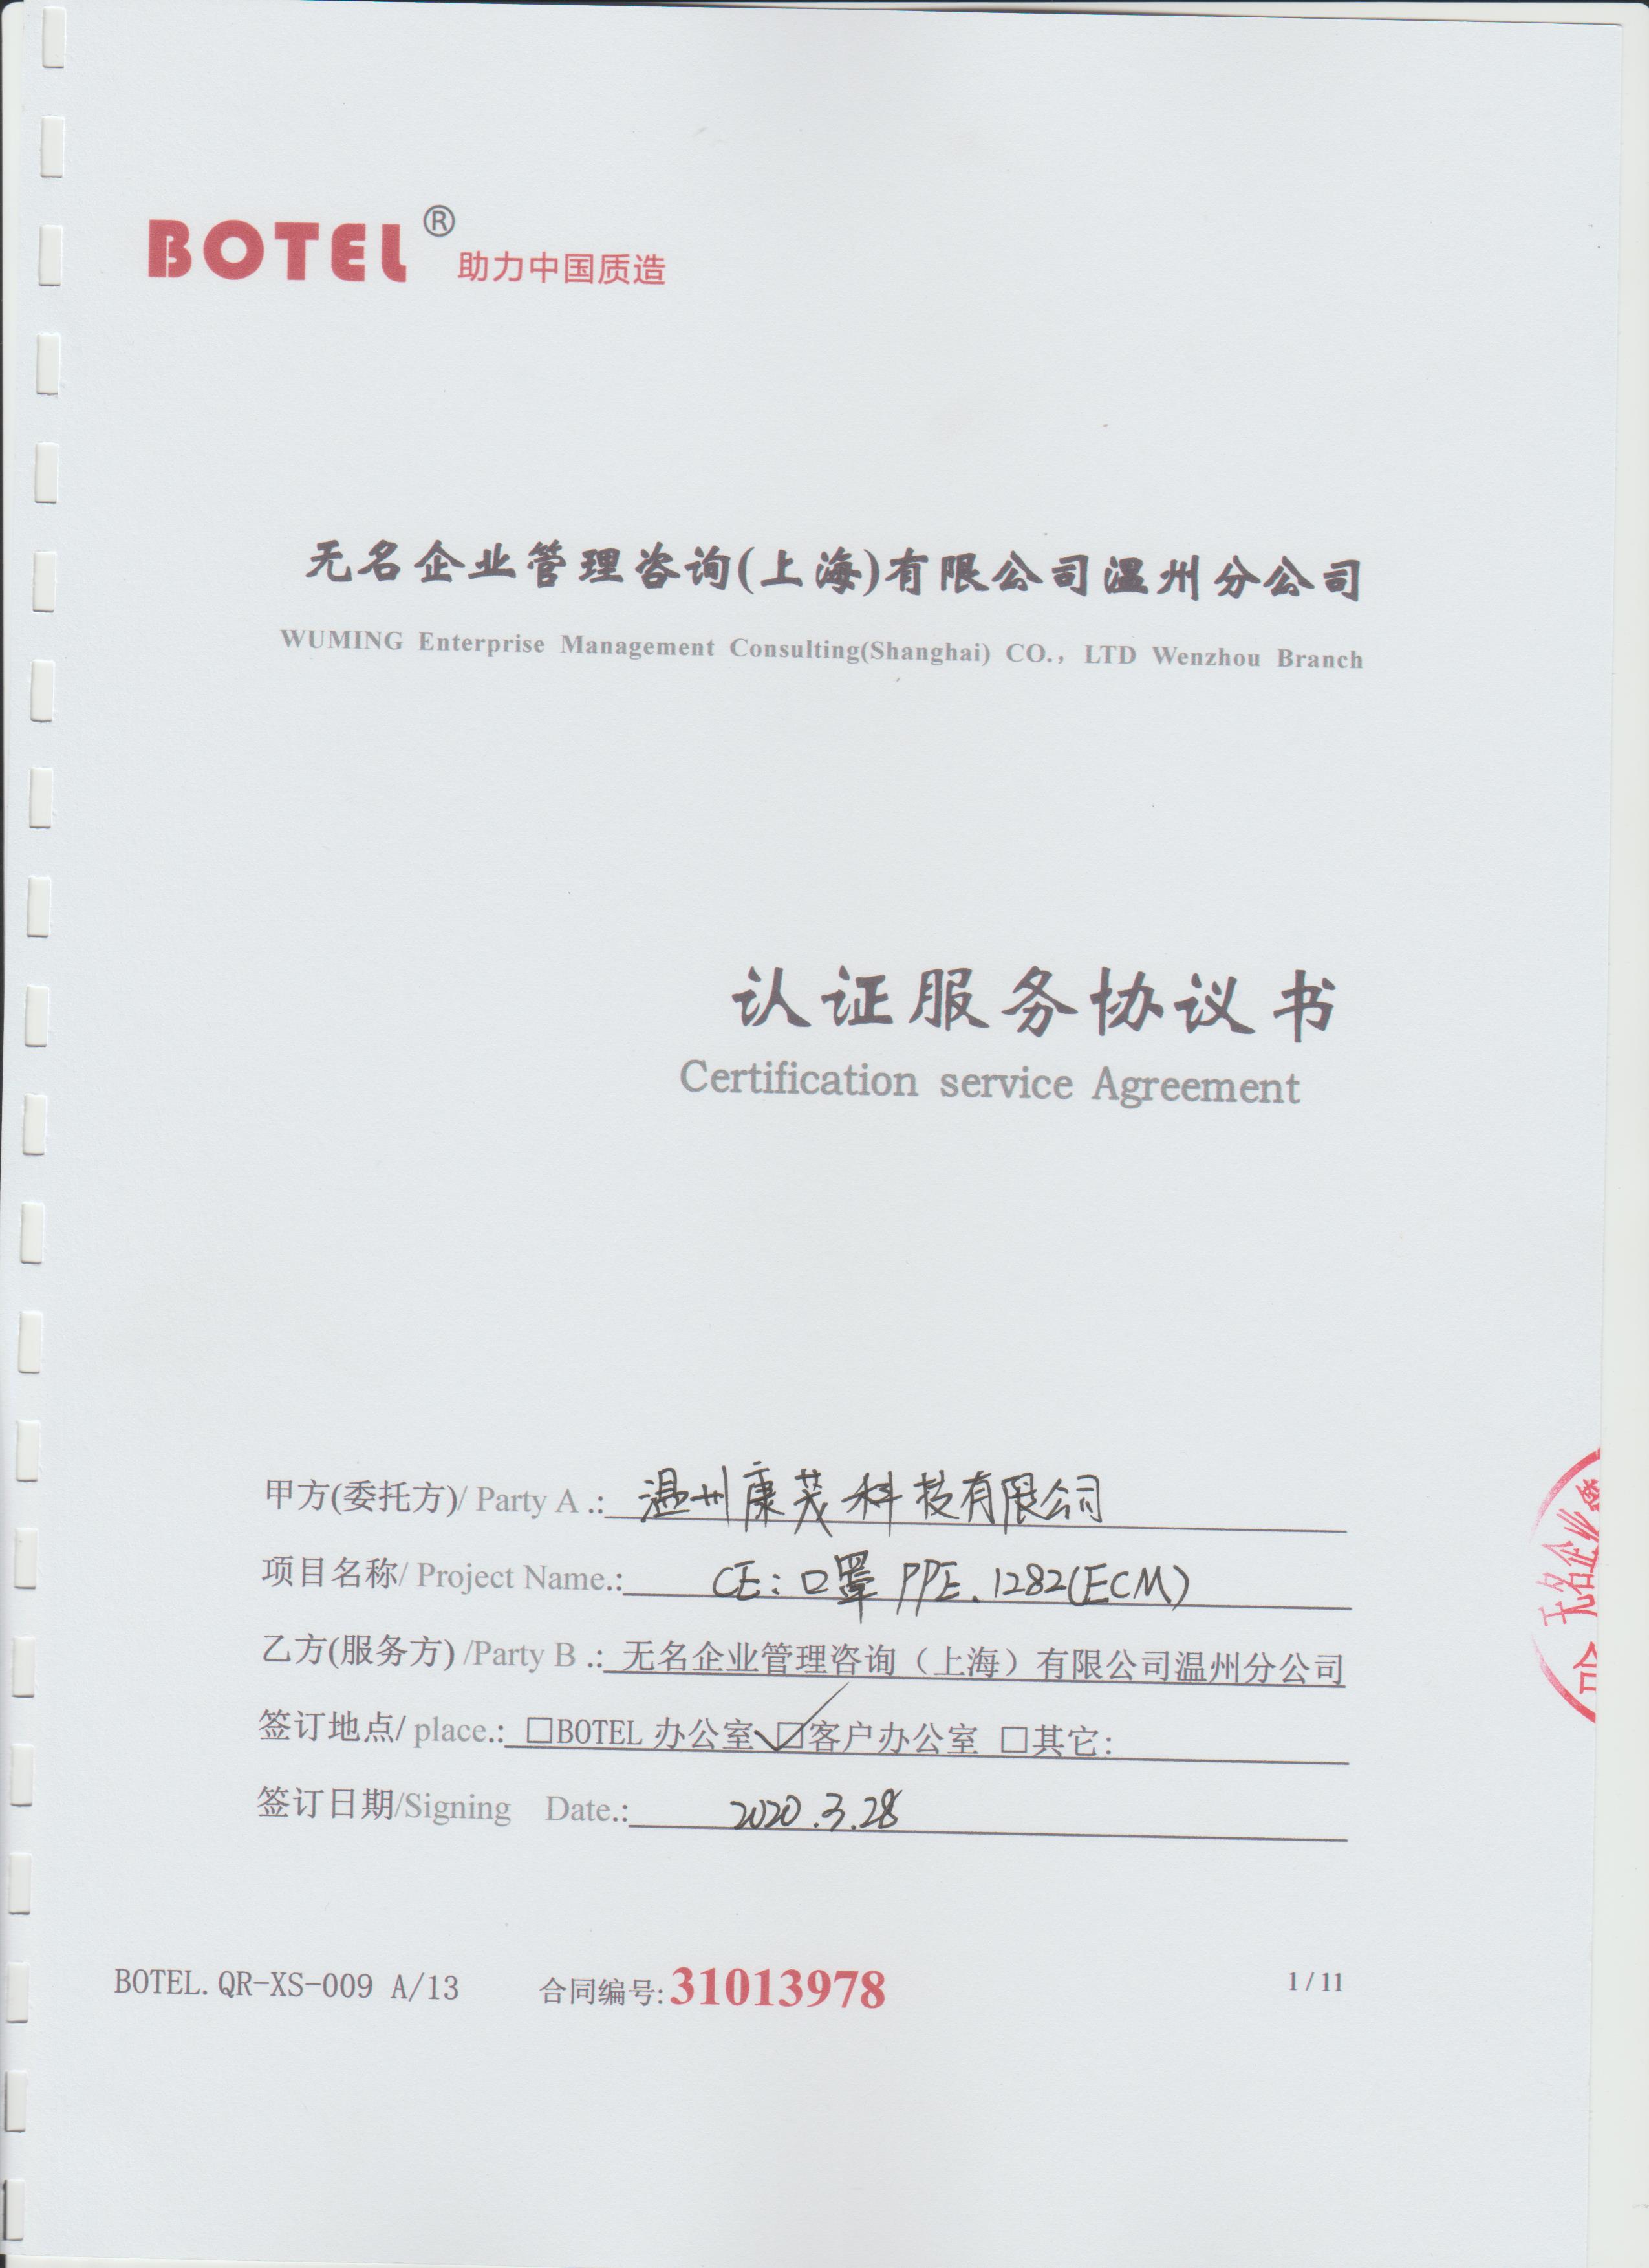 BOTEL® 助力中国质造
无名企业管理咨询(上海)有限公司温州分公司
WUMING Enterprise Management Consulting(Shanghai) CO., LTD Wenzhou Branch
认证服务协议书
Certification service Agreement
甲方(委托方)/ Party A .: 温州康茂科技有限公司
项目名称/ Project Name.: CE: 口罩 PPE. 1282(ECM)
乙方(服务方) /Party B .: 无名企业管理咨询（上海）有限公司温州分公司
签订地点/ place.: □BOTEL 办公室 ☑客户办公室 □其它:
签订日期/Signing Date.: 2020.3.28
无名企业管
合
BOTEL.QR-XS-009 A/13 合同编号:31013978 1 / 11